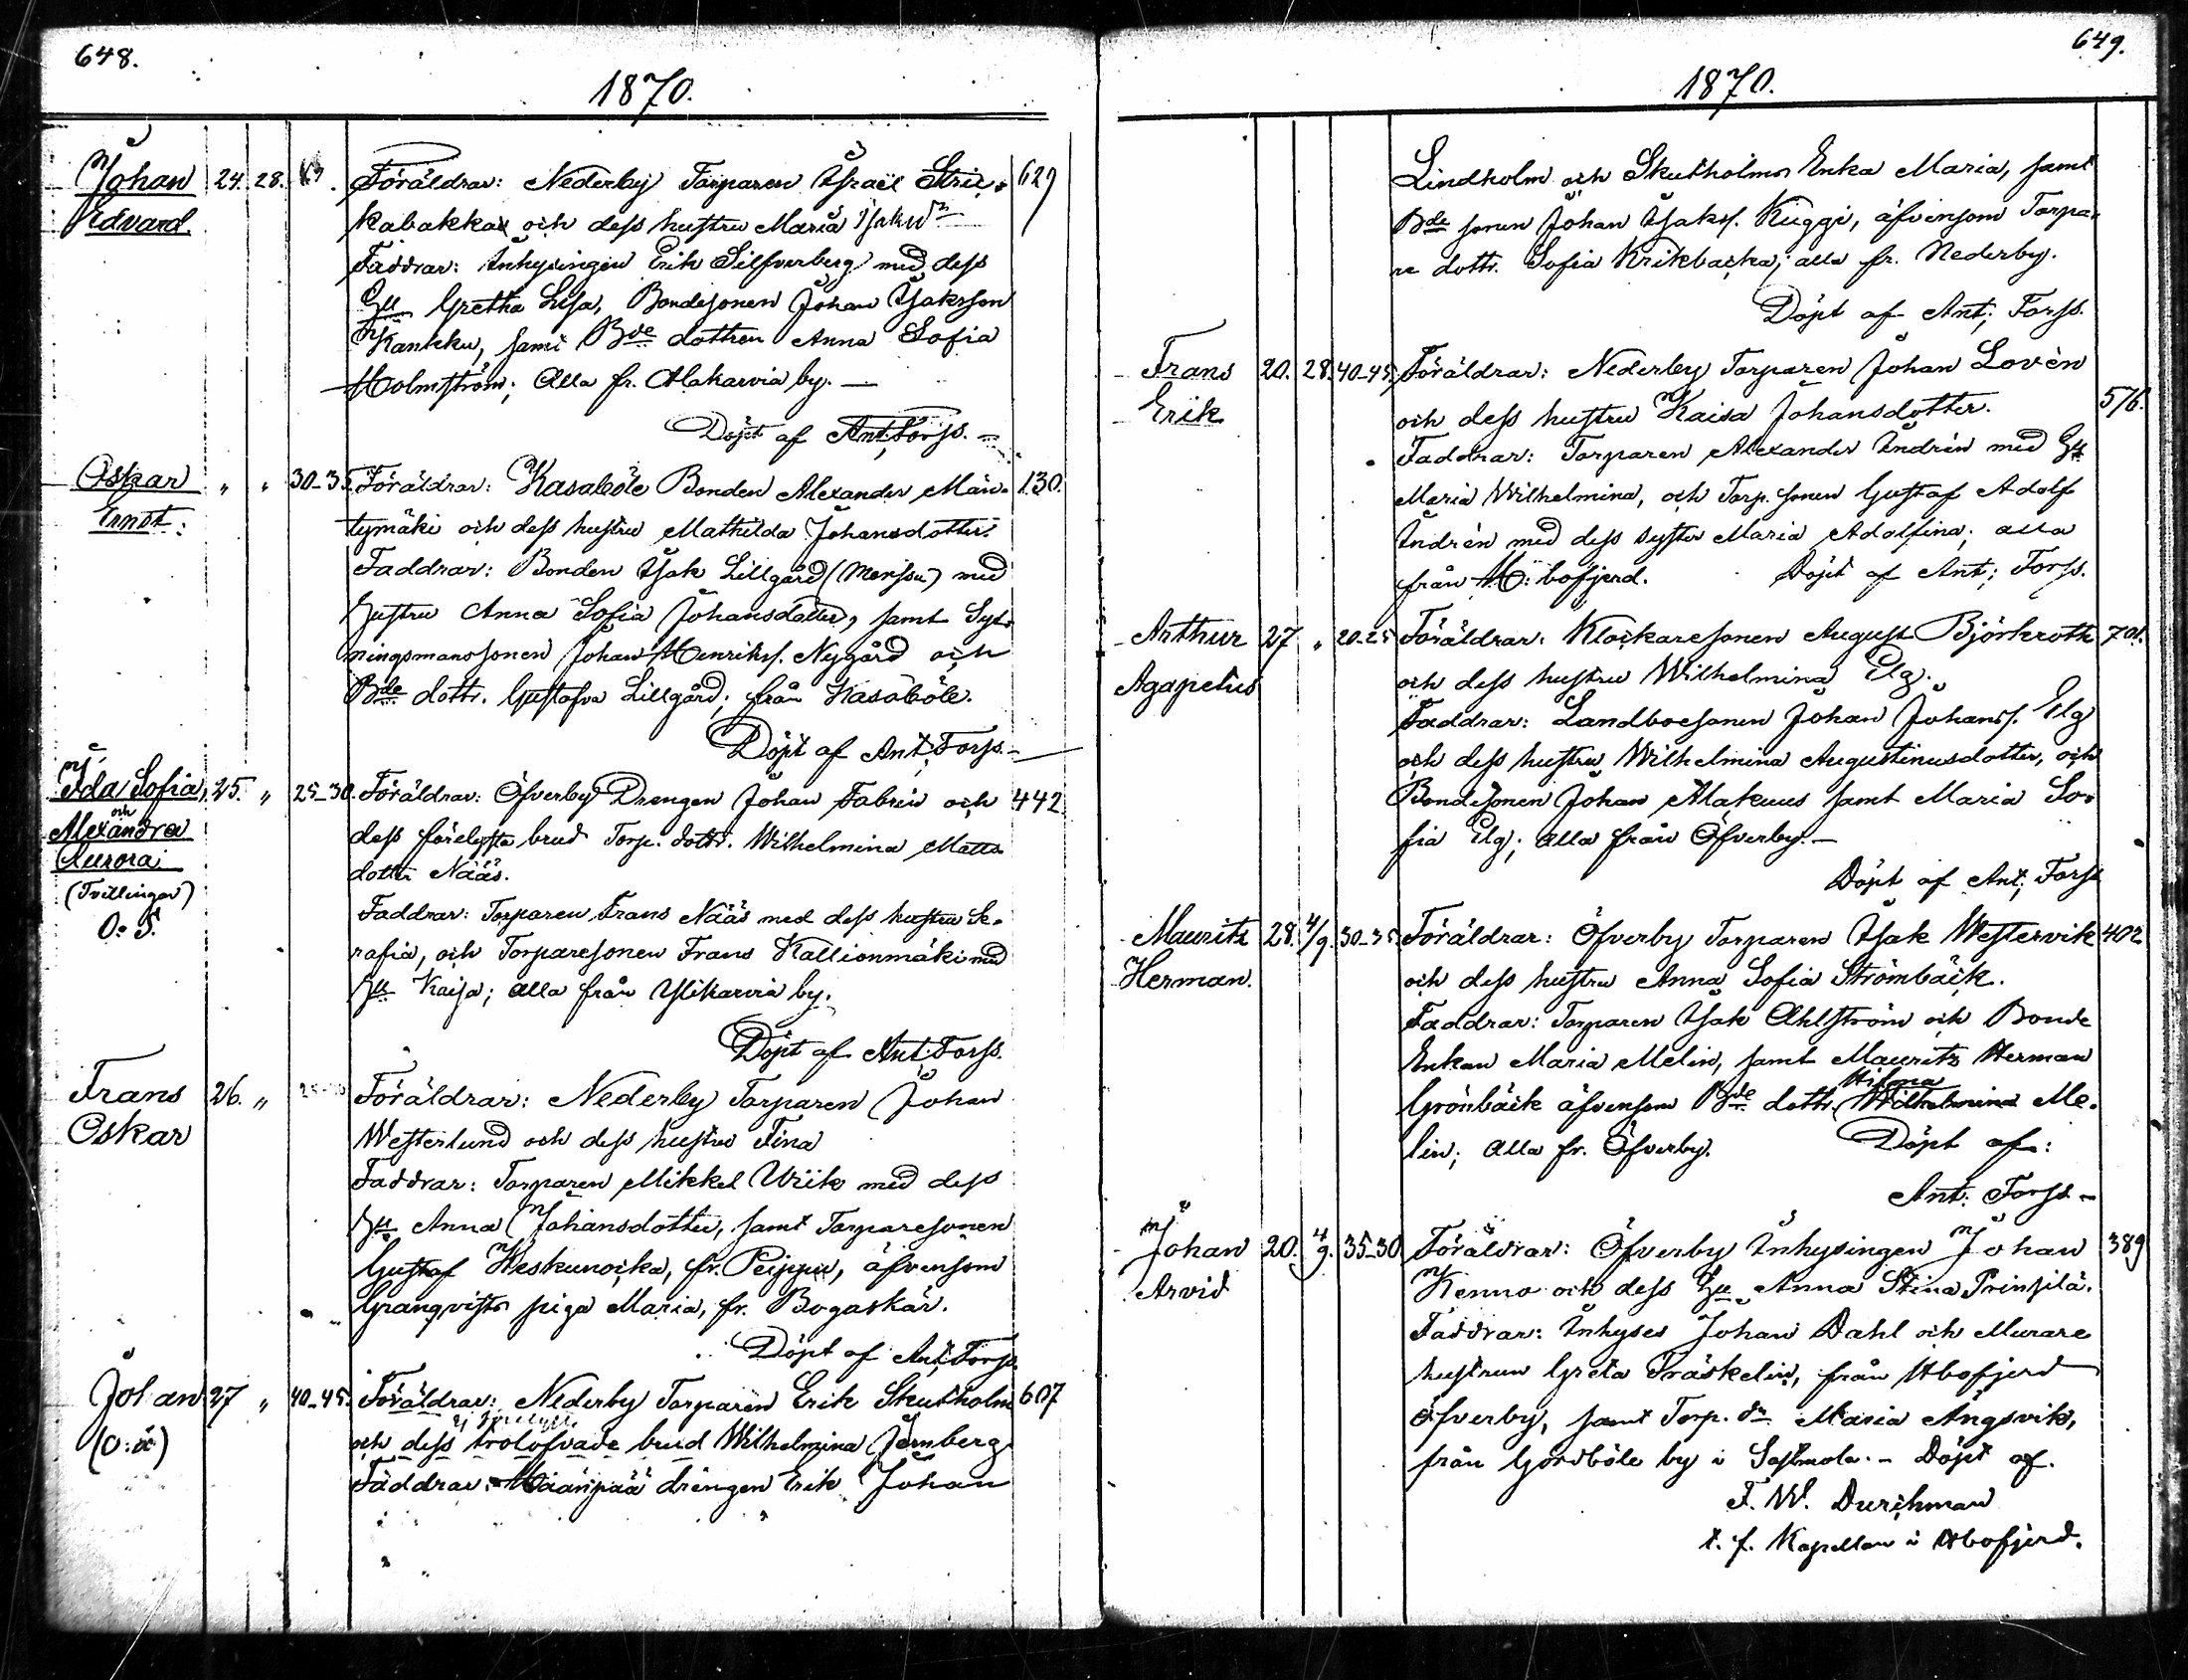 648.
1870.
Johan 24. 28. Föräldrar: Nederby Torparen Isräel Strie- 629
Edvard. kabakka och dess hustru Maria
Faddrar: Inhysingen Erik Silfverberg med dess
Hu Gretha Lisa, Bondesonen Johan Isaksson
Kankku, samt Bde dottren Anna Sofia
Holmström; Alla fr. Alakarvia by. —
Döpt af Ant. Forss. —
Oskar " " 30-35. Föräldrar: Kasaböle Bonden Alexander Män- 130.
Ernst. tymäki och dess hustru Mathilda Johansdotter.
Faddrar: Bonden Isak Lillgård (Merssu) med
Hustru Anna Sofia Johansdotter, samt Syt-
ningsmanssonen Johan Henrikss. Nygård och
Bde dottr. Gustafva Lillgård; från Kasaböle.
Döpt af Ant. Forss. —
Ida Sofia, 25. " 25-30. Föräldrar: Öfverby Drengen Johan Fabrin och 442
och
Alexandra dess förelysta brud Torp. dottr. Wilhelmina Matts
Aurora. dotter Nääs.
(Tvillingar) Faddrar: Torparen Frans Nääs med dess hustru Se-
O. S. rafia, och Torparesonen Frans Kallionmäki med
Hu Kaisa; alla från Ylikarvia by.
Döpt af Ant. Forss.
Frans 26. " Föräldrar: Nederby Torparen Johan
Oskar Westerlund och dess hustru Fina
Faddrar: Torparen Mikkel Wiik med dess
Hu Anna Johansdotter, samt Torparesonen
Gustaf Weskunocka, fr. Peippu, äfvensom
Granqvists piga Maria, fr. Bogaskär.
Döpt af Ant. Forss.
Johan 27 " 40-45. Föräldrar: Nederby Torparen Erik Skutholm 607
(O. ä) och dess trolofvade brud Wilhelmina Jernberg
Faddrar: Määnpää drängen Erik Johan
649.
1870.
Lindholm och Skutholms Enka Maria, samt
Bde sonen Johan Isakss. Kuggi, äfvensom Torpa-
re dottr. Sofia Krikbacka; alla fr. Nederby.
Döpt af Ant. Forss.
Frans 20. 28. 40-45. Föräldrar: Nederby Torparen Johan Lovèn
Erik och dess hustru Kaisa Johansdotter. 576.
Faddrar: Torparen Alexander Indrén med Hu
Maria Wilhelmina, och Torp. sonen Gustaf Adolf
Indrén med dess syster Maria Adolfina; alla
från H: bofjerd. Döpt af Ant. Forss.
Arthur 27 " 20-25 Föräldrar: Klockaresonen August Björkroth 701.
Agapetus och dess hustru Wilhelmina Elg.
Faddrar: Landboesonen Johan Johanss. Elg
och dess hustru Wilhelmina Augustinusdotter, och
Bondesonen Johan Alakuus samt Maria So-
fia Elg; alla från Öfverby. —
Döpt af Ant. Forss
Mauritz 28. 4/9. 30-35. Föräldrar: Öfverby Torparen Isak Westervik 402
Herman. och dess hustru Anna Sofia Strömbäck.
Faddrar: Torparen Isak Ahlström och Bonde
Enkan Maria Melin, samt Mauritz Herman
Hilma
Grönbäck äfvensom Bde dottr. Wilhelmina Me-
lin; alla fr. Öfverby. Döpt af:
Ant. Forss. —
Johan 20. 4/9. 35-30 Föräldrar: Öfverby Inhysingen Johan 389
Arvid Kenno och dess Hu Anna Stina Prinsilä.
Faddrar: Inhyses Johan Dahl och Murare
hustrun Greta Fräskelin, från Hbofjerd
Öfverby, samt Torp. dr Maria Ängsvik,
från Gordböle by i Sastmola. — Döpt af.
F. W. Durchman
t. f. Kapellan i Hbofjerd.